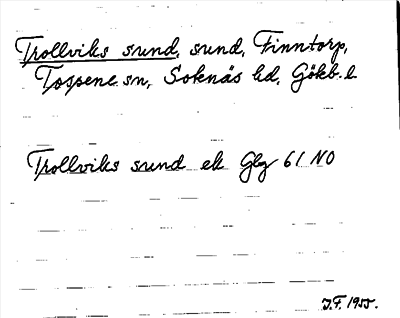 Trollviks sund, sund, Finntorp,
Tossene sn, Soknäs hd, Gökb. l.
Trollviks sund ek Glg 61 NO
J.F. 1955.